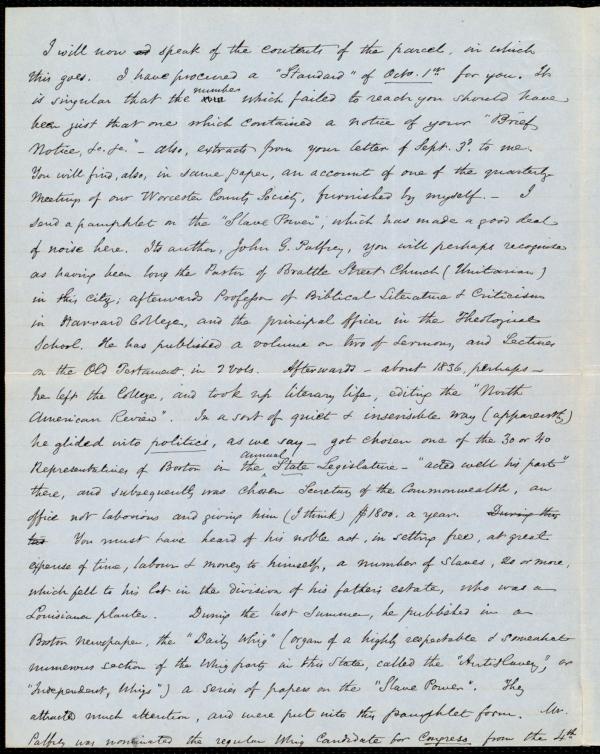 I will now speak of the contents of the parcel, in which
this goes. I have procured a "Standard" of Octo. 1st for you. It
is singular that the number which failed to reach you should have
been just that one which contained a notice of your "Brief
Notice, &c. &c." – also, extracts from your letter of Sept. 3d. to me.
You will find, also, in same paper, an account of one of the quarterly
Meetings of our Worcester County Society, furnished by myself. – I
send a pamphlet on the "Slave Power", which has made a good deal
of noise here. Its author, John G. Palfrey, you will perhaps recognise
as having been long the Pastor of Brattle Street Church (Unitarian)
in this city; afterwards Professor of Biblical Literature & Criticism
in Harvard College, and the principal officer in the Theological
School. He has published a volume or two of Sermons, and Lectures
on the Old Testament in 2 vols. Afterwards – about 1836, perhaps –
he left the College, and took up literary life, editing the "North
American Review". In a sort of quiet & insensible way (apparently)
he glided into politics, as we say – got chosen one of the 30 or 40
Representatives of Boston in the annual State Legislature – "acted well his part"
there, and subsequently was chosen Secretary of the Commonwealth, an
office not laborious and giving him (I think) $1800. a year. During this
You must have heard of his noble act, in setting free, at great
expense of time, labour & money to himself, a number of Slaves, 20 or more,
which fell to his lot in the division of his father's estate, who was a
Louisiana planter. During the last Summer, he published in a
Boston newspaper, the "Daily Whig" (organ of a highly respectable & somewhat
numerous section of the Whig party in this State, called the "Antislavery", or
"Independent, Whigs") a series of papers on the "Slave Power". They
attracted much attention, and were put into this pamphlet form. Mr.
Palfrey was nominated the regular Whig Candidate for Congress from the 4th